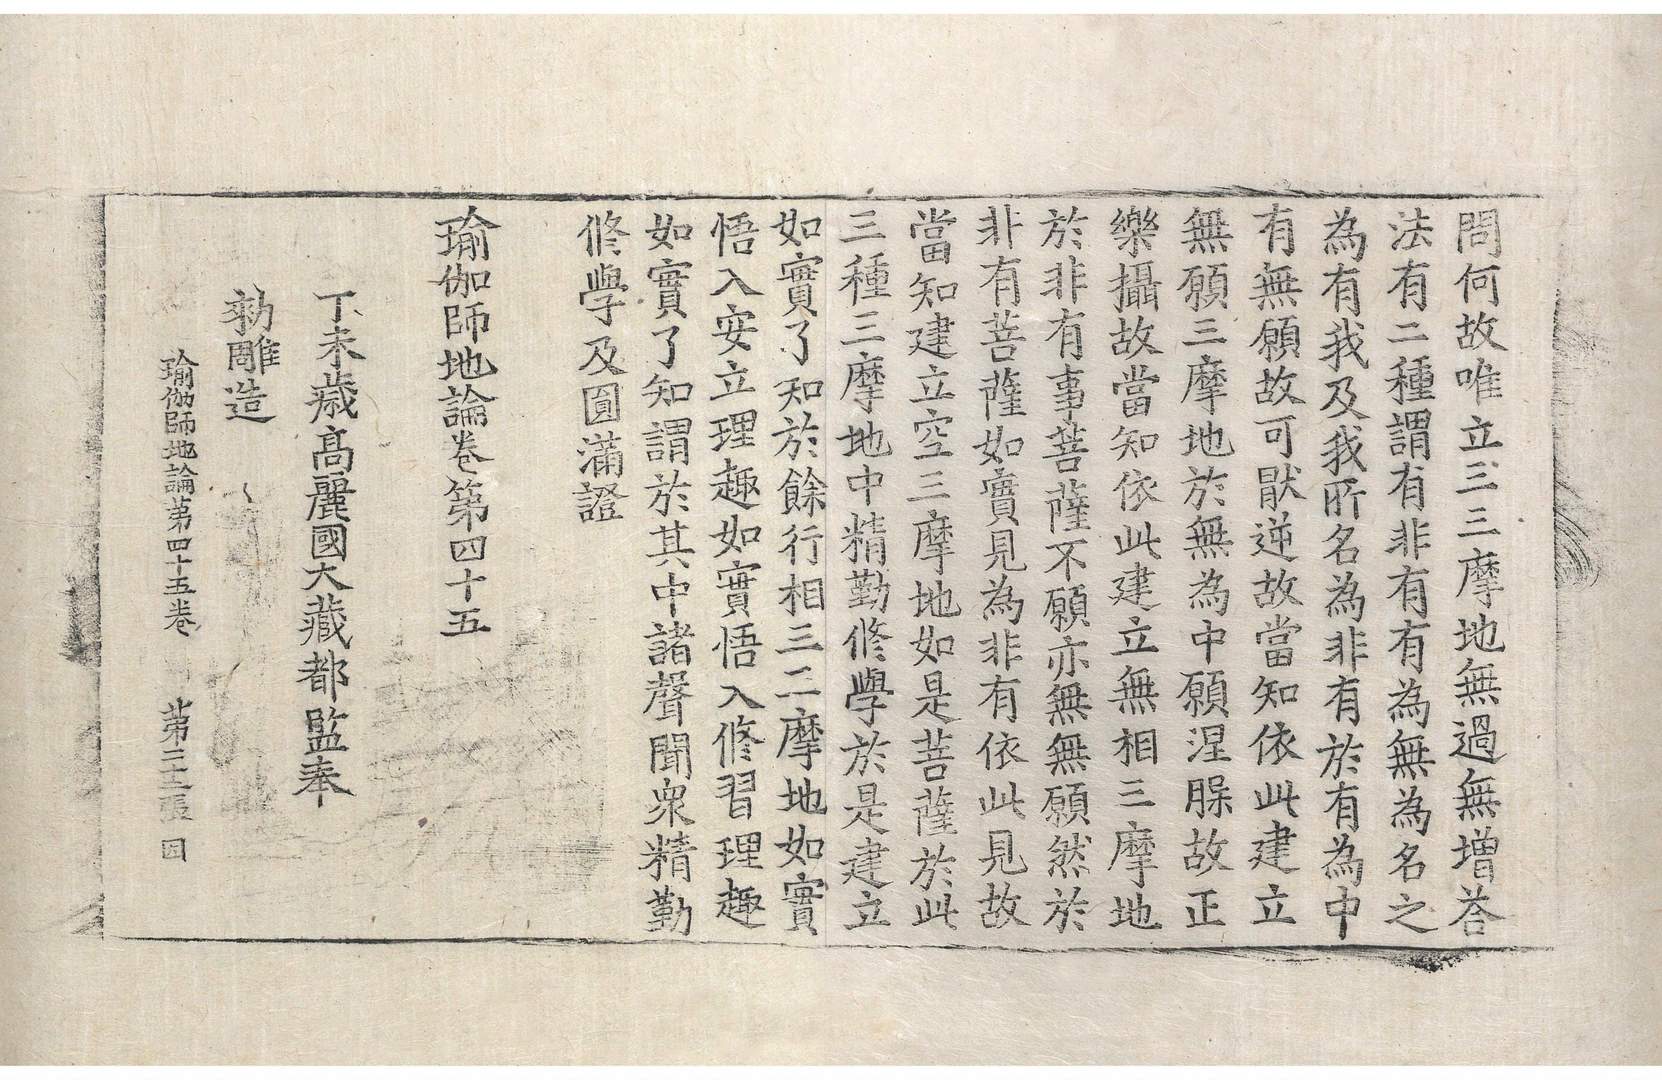 問何故唯立三三摩地無過無增荅
法有二種謂有非有有為無為名之
為有我及我所名為非有於有為中
有無願故可猒逆故當知依此建立
無願三摩地於無為中願涅脲故正
樂攝故當知依此建立無相三摩地
於非有事菩薩不願亦無無願然於
非有菩薩如實見為非有依此見故
當知建立空三摩地如是菩薩於此
三種三摩地中精勤修學於是建立
如實了知於餘行相三二摩地如實
悟入安立理趣如實悟入修習理趣
如實了知謂於其中諸聲聞衆精勤
修學及圓滿證
瑜伽師地論卷第四十五
丁未歲高麗國大藏都監奉
勑雕造
瑜伽師地論第四十五卷 第二十二張 因